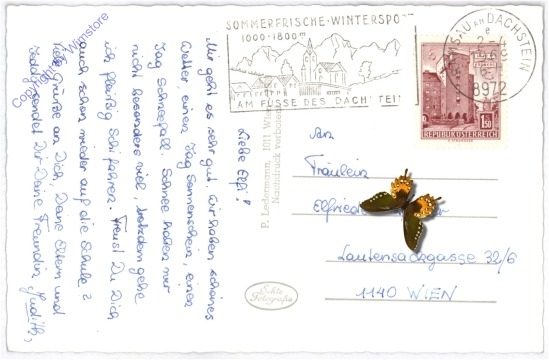 SOMMERFRISCHE-WINTERSPO
1000-1800m
AM FUSSE DES DACHSTEIN
RAMSAU AM DACHSTEIN
8972
1.50
REPUBLIK ÖSTERREICH
Liebe Elfi!
Mir geht es sehr gut. Wir haben schönes
Wetter, einen Tag Sonnenschein, einen
Tag Schneefall. Schnee haben wir
nicht besonders viel, trotzdem gehe
ich fleißig Schi fahren. Freust Du Dich
auch schon wieder auf die Schule?
Viele Grüße an Dich, Deine Eltern und
sendet Dir Deine Freundin Judith,
P. Ledermann, 1011 Wien
Nachdruck verboten
Echte
Fotografie
An
Fräulein
Elfriede
Lautensackgasse 32/6
1140 WIEN
Copyright Wimstore